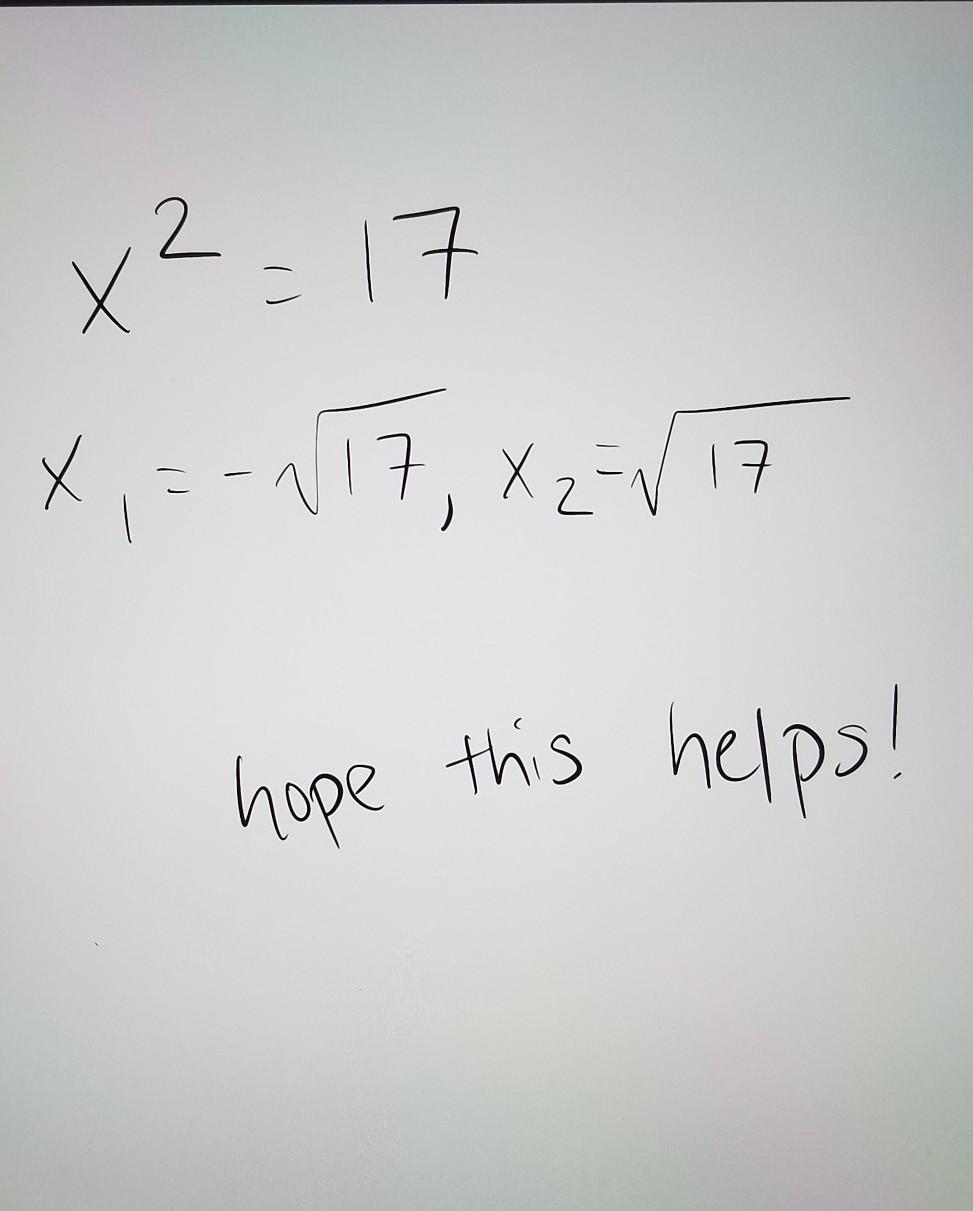 x² = 17
x₁ = -√17, x₂ = √17
hope this helps!